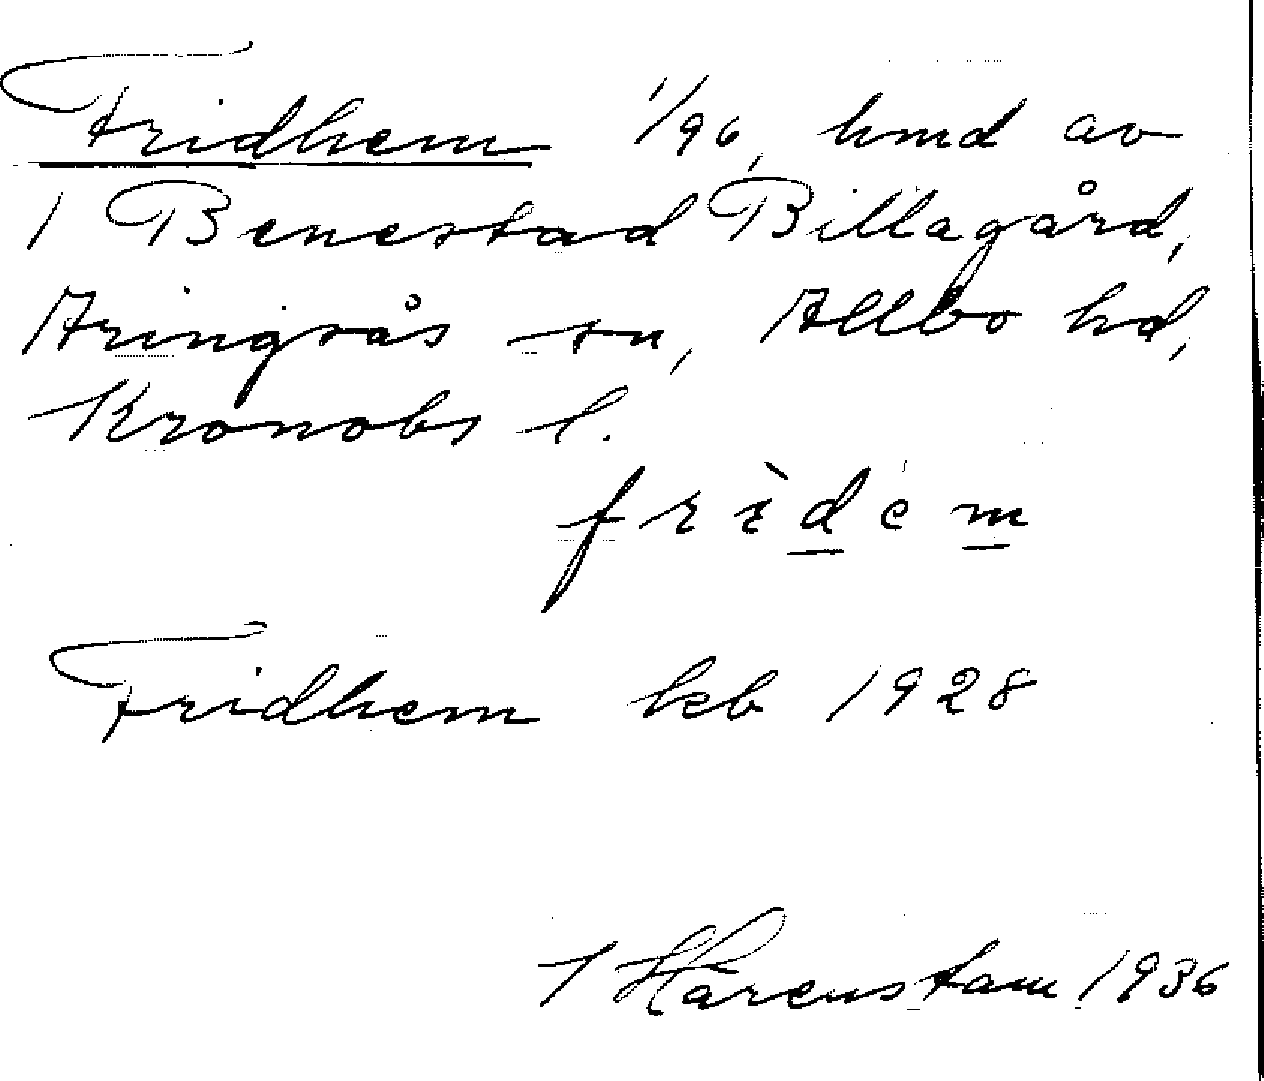 Fridhem 1/96, hmd av
1 Benestad Billagård,
Aringsås sn, Allbo hd,
Kronobs l.
frìdem
Fridhem kb 1928
Hårenstam 1936